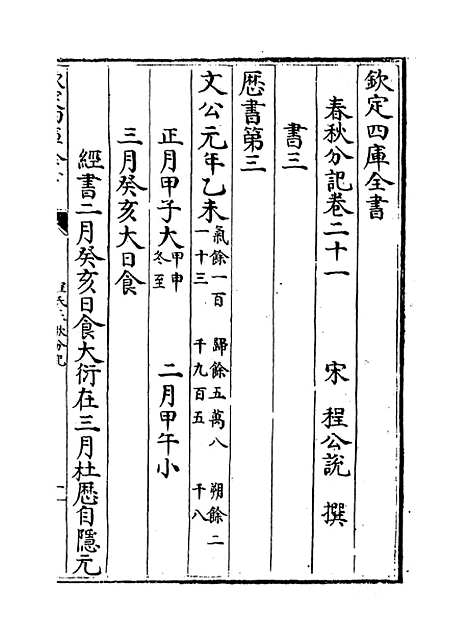 欽定四庫全書
春秋分記卷二十一
宋 程公說 撰
書三
歷書第三
文公元年乙未氣餘一百一十三 歸餘五萬八千九百五 朔餘二千八
正月甲子大甲申冬至 二月甲午小
三月癸亥大日食
經書二月癸亥日食大衍在三月杜歷自隱元